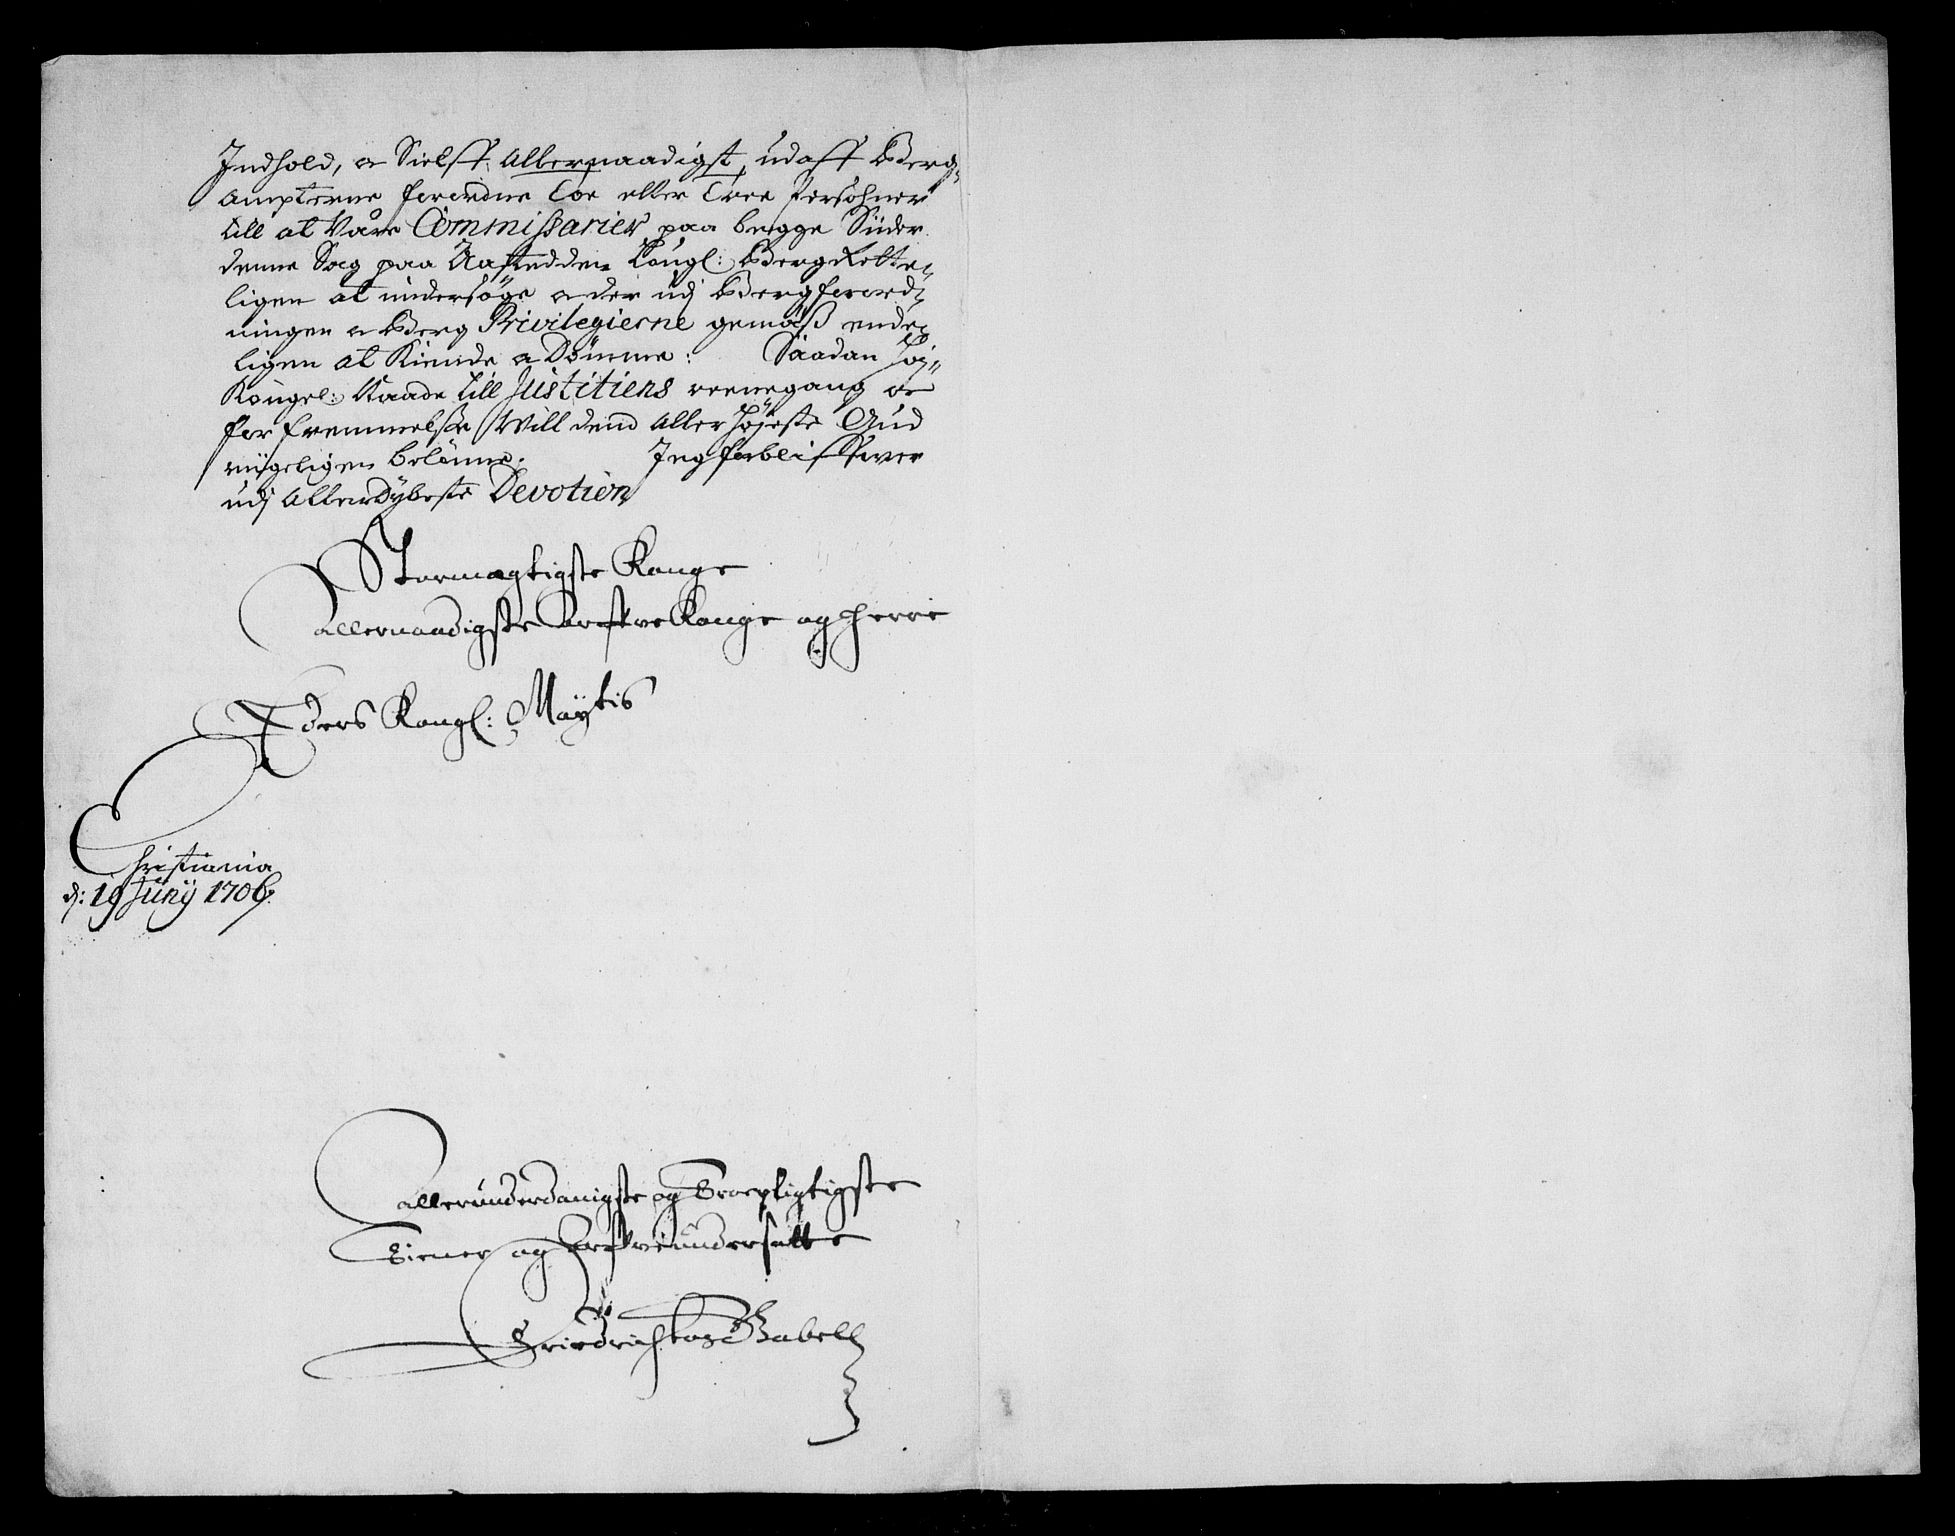 Indhold, a Sielff Allernaadigst, udaff Berg-
Ampterne forordne Toe eller Tree Persohner
till at Vare Commissarier paa begge Siider
denne Sag paa Aastedden Kongl: Berg Rette-
ligen at undersöge a der udj Bergforord-
ningen a Berg Privilegierne gemäß ende-
ligen at Kiende a Dömme: Saadan Höj-
Kongel: Naade till Justitiens reenegang oc
forfremmelse Will dend Allerhöjeste Gud
riigeligen belönne. Jeg forbliffver
udj Allerdybeste Devotion
Stormægtigste Konge
Allernaadigste Arfve Konge og Herre
Eders Kongl: Maÿtis
Christiania
d: 19 Junij 1706.
Allerunderdanigste og Troepligtigste
Tiener og Arfveundersatte
Friedrich Gabell